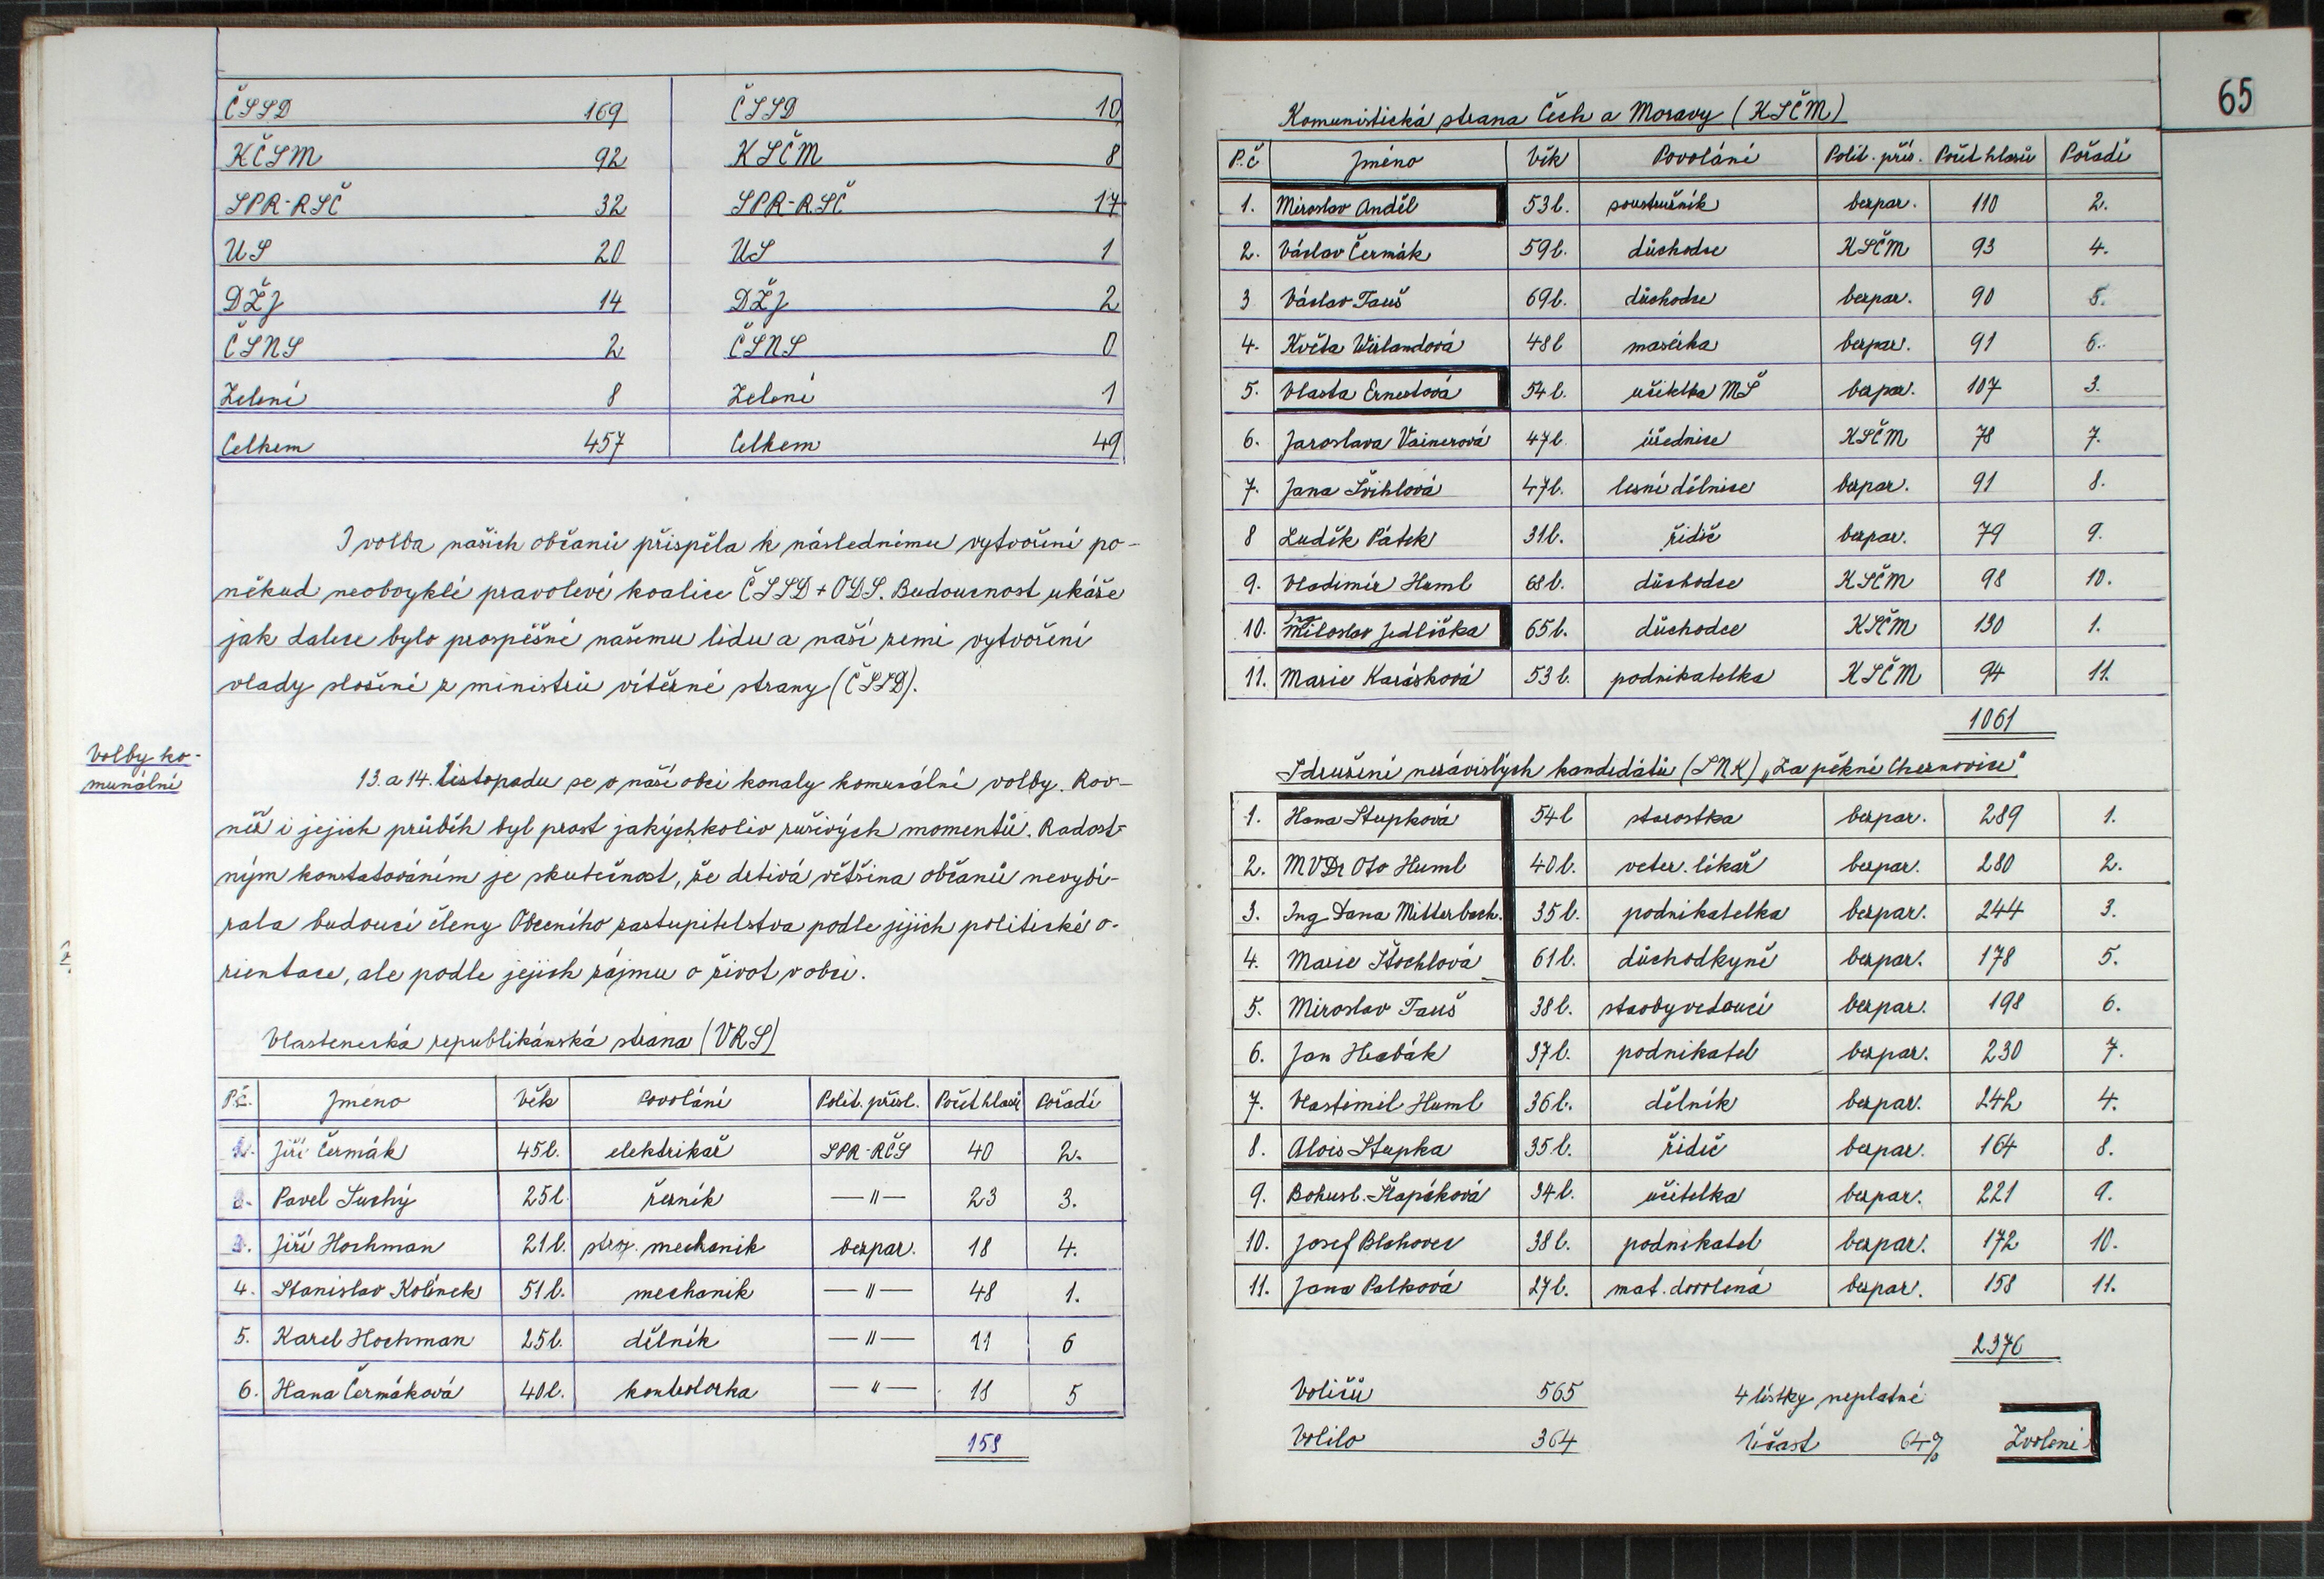 ČSSD 169 ČSSD 10
KČSM 92 KSČM 8
SPR-RSČ 32 SPR-RSČ 17
US 20 US 1
DŽJ 14 DŽJ 2
ČSNS 2 ČSNS 0
Zelení 8 Zelení 1
Celkem 457 Celkem 49
I volba našich občanů přispěla k následnímu vytvoření po-
někud neobvyklé pravolevé koalice ČSSD + ODS. Budoucnost ukáže
jak dalece bylo prospěšné našemu lidu a naší zemi vytvoření
vlady složené z ministrů vítězné strany (ČSSD).
Volby ko-
munální
13. a 14. listopadu se v naší obci konaly komunální volby. Rov-
něž i jejich průběh byl prost jakýchkoliv rušivých momentů. Radost-
ným konstatováním je skutečnost, že drtivá většina občanů nevybí-
rala budoucí členy Obecního zastupitelstva podle jejich politické o-
rientace, ale podle jejich zájmu o život v obci.
Vlastenecká republikánská strana (VRS)
P.č. Jméno Věk Povolání Polit. přísl. Počet hlasů Pořadí
1. Jiří Čermák 45 l. elektrikář SPR-RČS 40 2.
2. Pavel Suchý 25 l. řezník —"— 23 3.
3. Jiří Hochman 21 l. stroj. mechanik bezpar. 18 4.
4. Stanislav Kolínek 51 l. mechanik —"— 48 1.
5. Karel Hochman 25 l. dělník —"— 11 6
6. Hana Čermáková 40 l. kontrolorka —"— 18 5
158
65
Komunistická strana Čech a Moravy (KSČM)
P.č Jméno Věk Povolání Polit. přís. Počet hlasů Pořadí
1. Miroslav Anděl 53 l. soustružník bezpar. 110 2.
2. Václav Čermák 59 l. důchodce KSČM 93 4.
3 Václav Tauš 69 l. důchodce bezpar. 90 5.
4. Květa Wirlandová 48 l masérka bezpar. 91 6.
5. Vlasta Ernestová 54 l. učitelka MŠ bezpar. 107 3.
6. Jaroslava Vainerová 47 l úřednice KSČM 78 7.
7. Jana Švihlová 47 l. lesní dělnice bezpar. 91 8.
8 Luděk Pátek 31 l. řidič bezpar. 79 9.
9. Vladimír Huml 68 l. důchodce KSČM 98 10.
10. Miloslav Jedlička 65 l. důchodce KSČM 130 1.
11. Marie Karásková 53 l. podnikatelka KSČM 94 11.
1061
Sdružení nezávislých kandidátů (SNK) „Za pěkné Chernovice"
1. Hana Stupková 54 l starostka bezpar. 289 1.
2. MVDr Oto Huml 40 l. veter. lékař bezpar. 280 2.
3. Ing Dana Mitterbach. 35 l. podnikatelka bezpar. 244 3.
4. Marie Štochlová 61 l. důchodkyně bezpar. 178 5.
5. Miroslav Tauš 38 l. stavbyvedoucí bezpar. 198 6.
6. Jan Hrabák 37 l. podnikatel bezpar. 230 7.
7. Vlastimil Huml 36 l. dělník bezpar. 242 4.
8. Alois Stupka 35 l. řidič bezpar. 164 8.
9. Bohusl. Šlapáková 34 l. učitelka bezpar. 221 9.
10. Josef Blahovec 38 l. podnikatel bezpar. 172 10.
11. Jana Palková 27 l. mat. dovolená bezpar. 158 11.
2376
Voličů 565 4 lístky neplatné
Volilo 364 Účast 64% Zvoleni